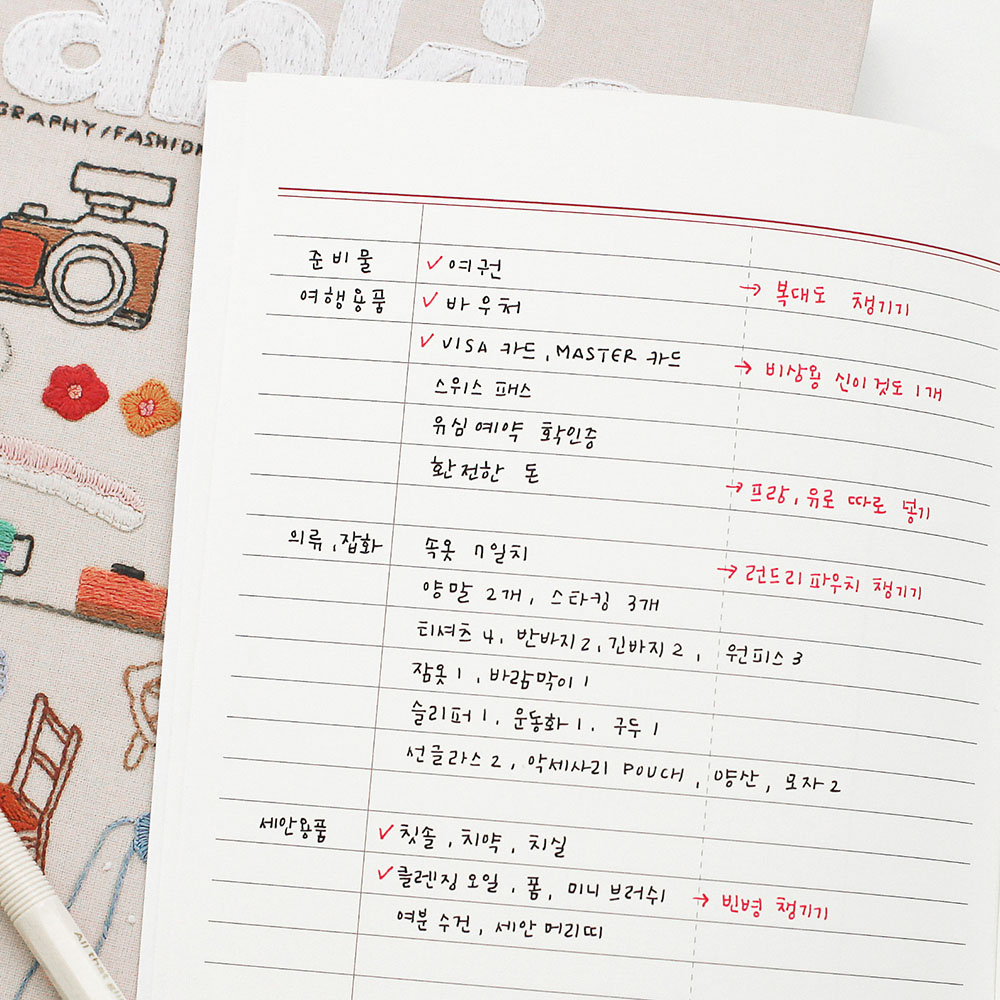 GRAPHY/FASHION
준비물 ✓ 여권
→ 복대도 챙기기
여행용품 ✓ 바우처
✓ VISA 카드, MASTER 카드
→ 비상용 신이것도 1개
스위스 패스
유심예약 확인증
환전한 돈
→ 프랑, 유로 따로 넣기
의류, 잡화 속옷 7일치
→ 런드리파우치 챙기기
양말 2개, 스타킹 3개
티셔츠 4, 반바지2, 긴바지 2, 원피스 3
잠옷 1, 바람막이 1
슬리퍼 1, 운동화 1, 구두 1
선글라스 2, 악세사리 POUCH, 양산, 모자 2
세안용품 ✓ 칫솔, 치약, 치실
✓ 클렌징 오일, 폼, 미니 브러쉬
→ 빈병 챙기기
여분 수건, 세안 머리띠
All that